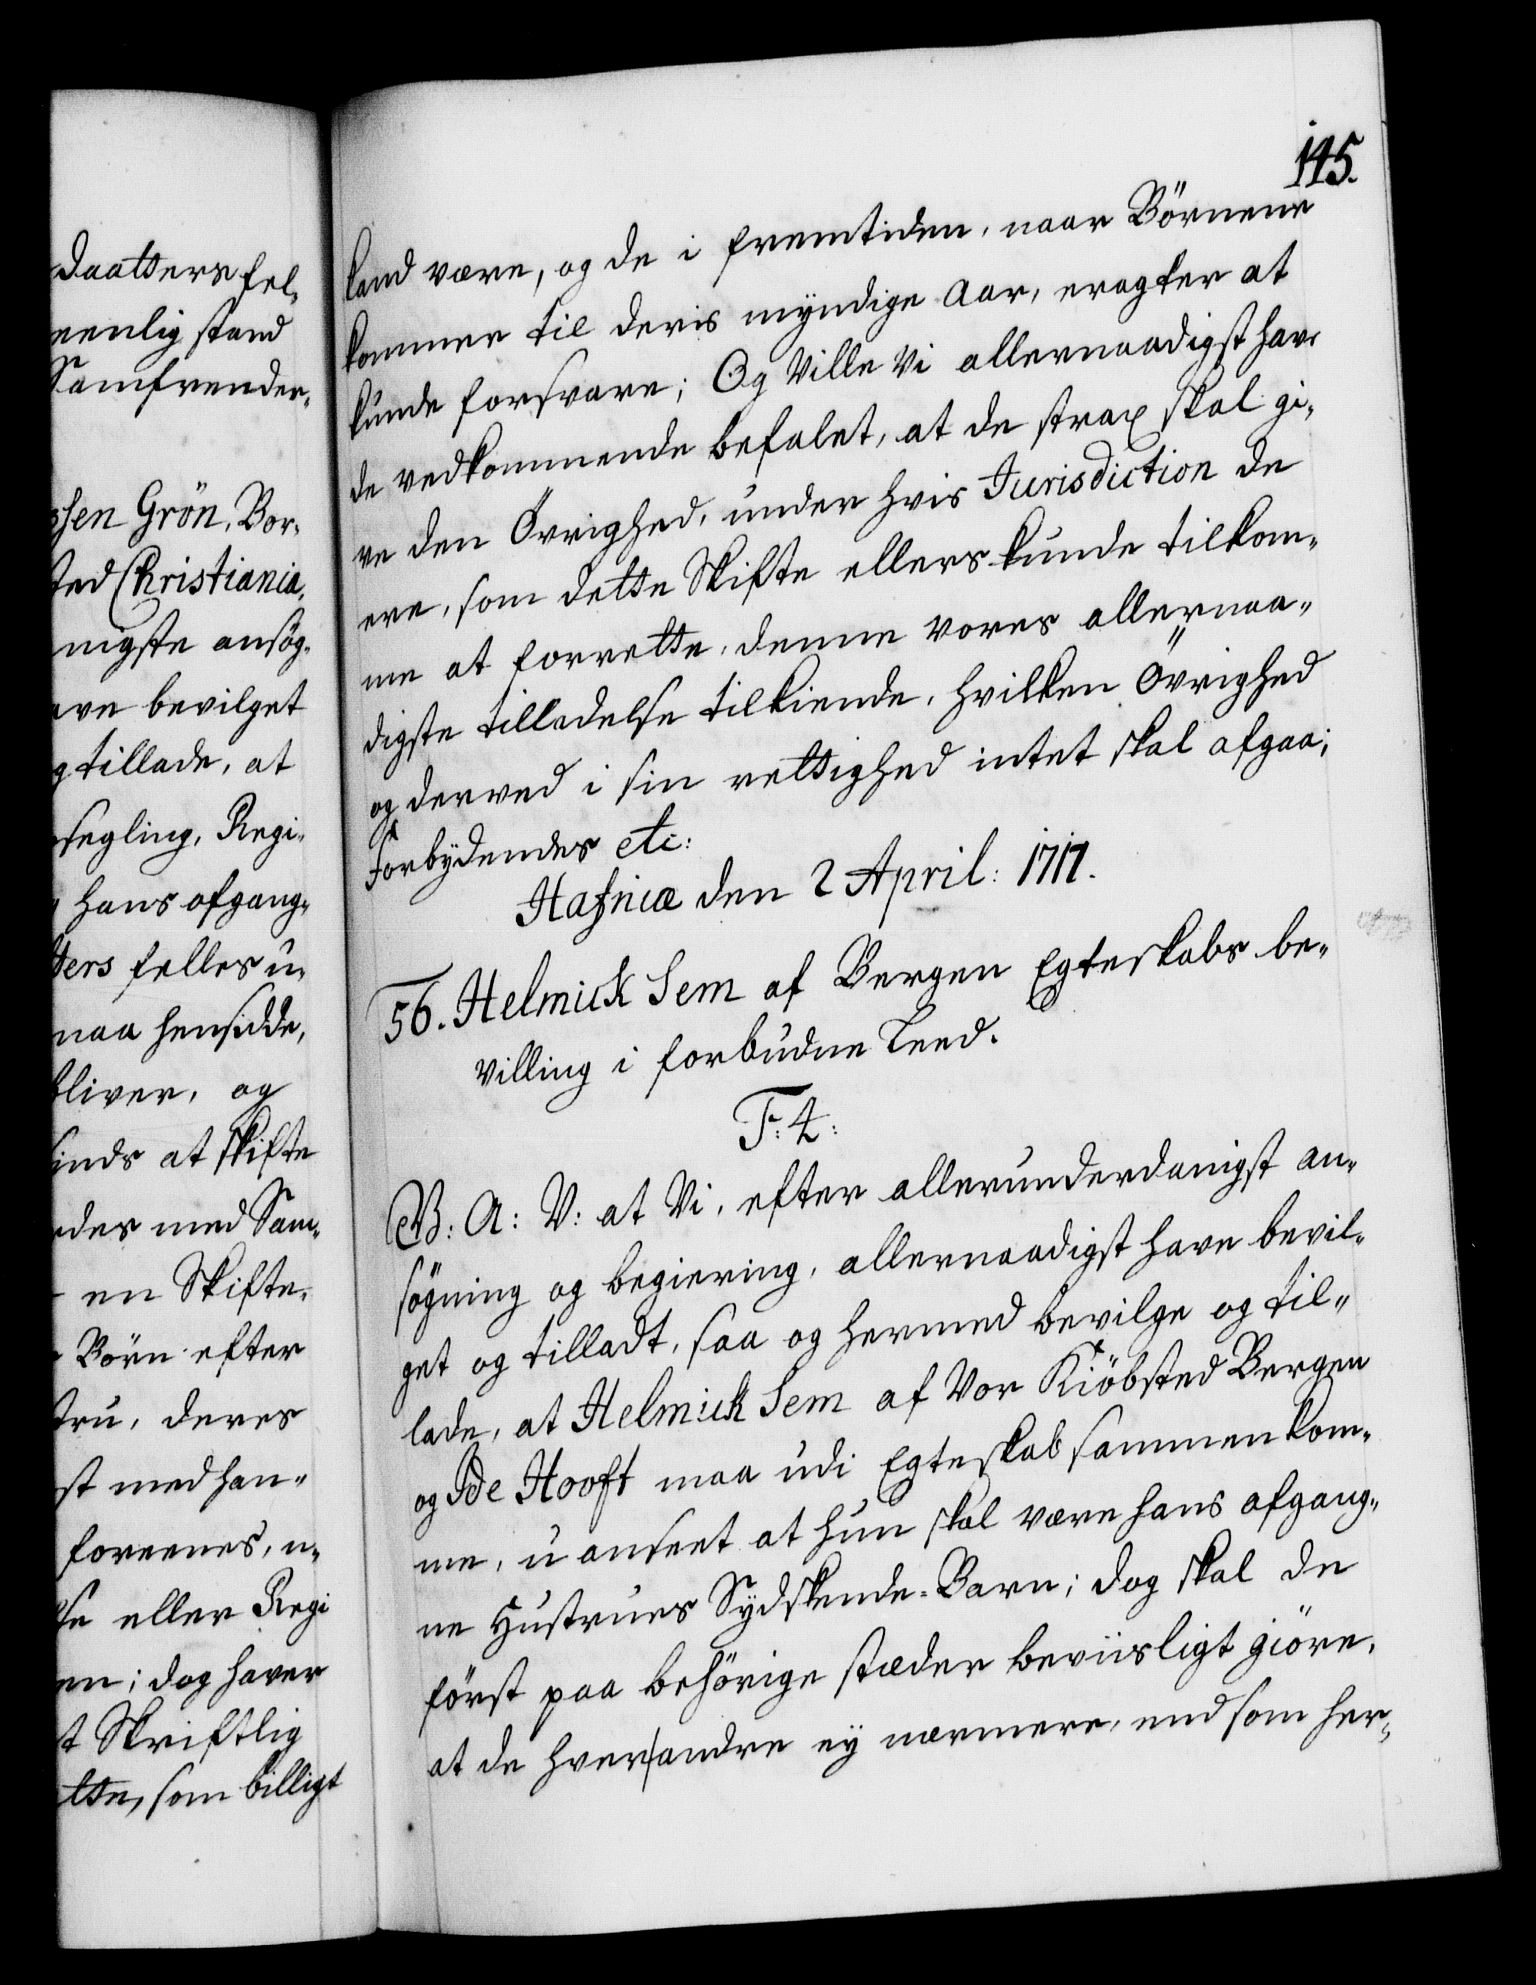 daatters fel-
eenlig stand
Samfrender,
sen Grön, Bor-
sted Christiania,
nigste ansög-
ave bevilget
g tillade, at
segling, Regi-
hans afgang-
ters felles u-
maa hensidde,
bliver, og
sinds at skifte
ndes med Sam-
en Skifte-
Börn efter
stru, deres
st med han-
foreenes, u-
lse eller Regi
en; dog haver
t Skriftlig
ette, som billigt
145.
kand være, og de i fremtiden, naar Börnene
kommer til deris myndige Aar, eragter at
kunde forsvare; Og Ville Vi allernaadigst hav-
de vedkommende befalet, at de strax skal gi-
ve den Övrighed, under hvis Jurisdiction de
ere, som dette Skifte ellers kunde tilkom-
me at forrette, denne vores allernaa-
digste tilladelse tilkiende, hvilken Övrighed
og derved i sin rettighed intet skal afgaa;
Forbydendes etc:
Hafniæ den 2 April: 1717.
56. Helmick Sem af Bergen Egteskabs be-
villing i forbudne Leed.
F: 4:
G: A: V: at Vi, efter allerunderdanigst an-
sögning og begiering, allernaadigst have bevil-
get og tilladt, saa og hermed bevilge og til-
lade, at Helmick Sem af Vor Kiöbsted Bergen
og Ide Hooft maa udi Egteskab sammen kom-
me, u anseet at hun skal være hans afgang-
ne Hustrues Sydskende-Barn; dog skal de
först paa behörige stæder beviisligt giöre,
at de hver andre ey nærmere, end som her-